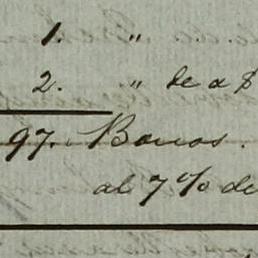 1. "
2. " de a $
97. Bonos.
al 7% de